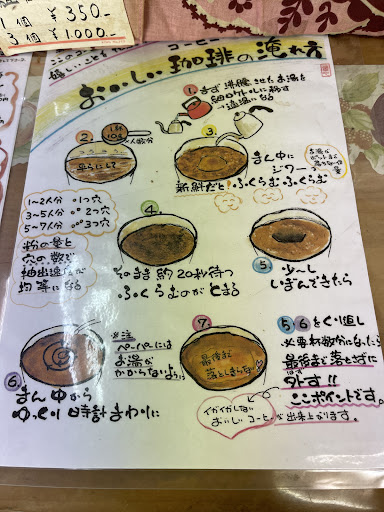 1個 ¥350-
3個 ¥1,000-
コーヒー
おいしい珈琲の淹れ方
1. まず沸騰したお湯を
細口ケトルに移す
→適温になる
2.
1杯
10g
1人分
平らにして
3.
まん中に
ジワーっ
新鮮だと!ふくらむふくらむ
1〜2人分 1つ穴
3〜5人分 2つ穴
5〜7人分 3つ穴
粉の量と
穴の数で
抽出速度が
均等になる
4.
そのまま約20秒待つ
ふくらむのがとまる
5.
少〜し
しぼんできたら
6.
まん中から
ゆっくり時計まわりに
※注
ペーパーには
お湯が
かからないように
7.
最後まで
落としきらない
5 6をくり返し
※必要杯数分になったら
最後まで落とさずに
外す!!
ここポイントです。
イガイガしない
おいしいコーヒーが出来上がります。